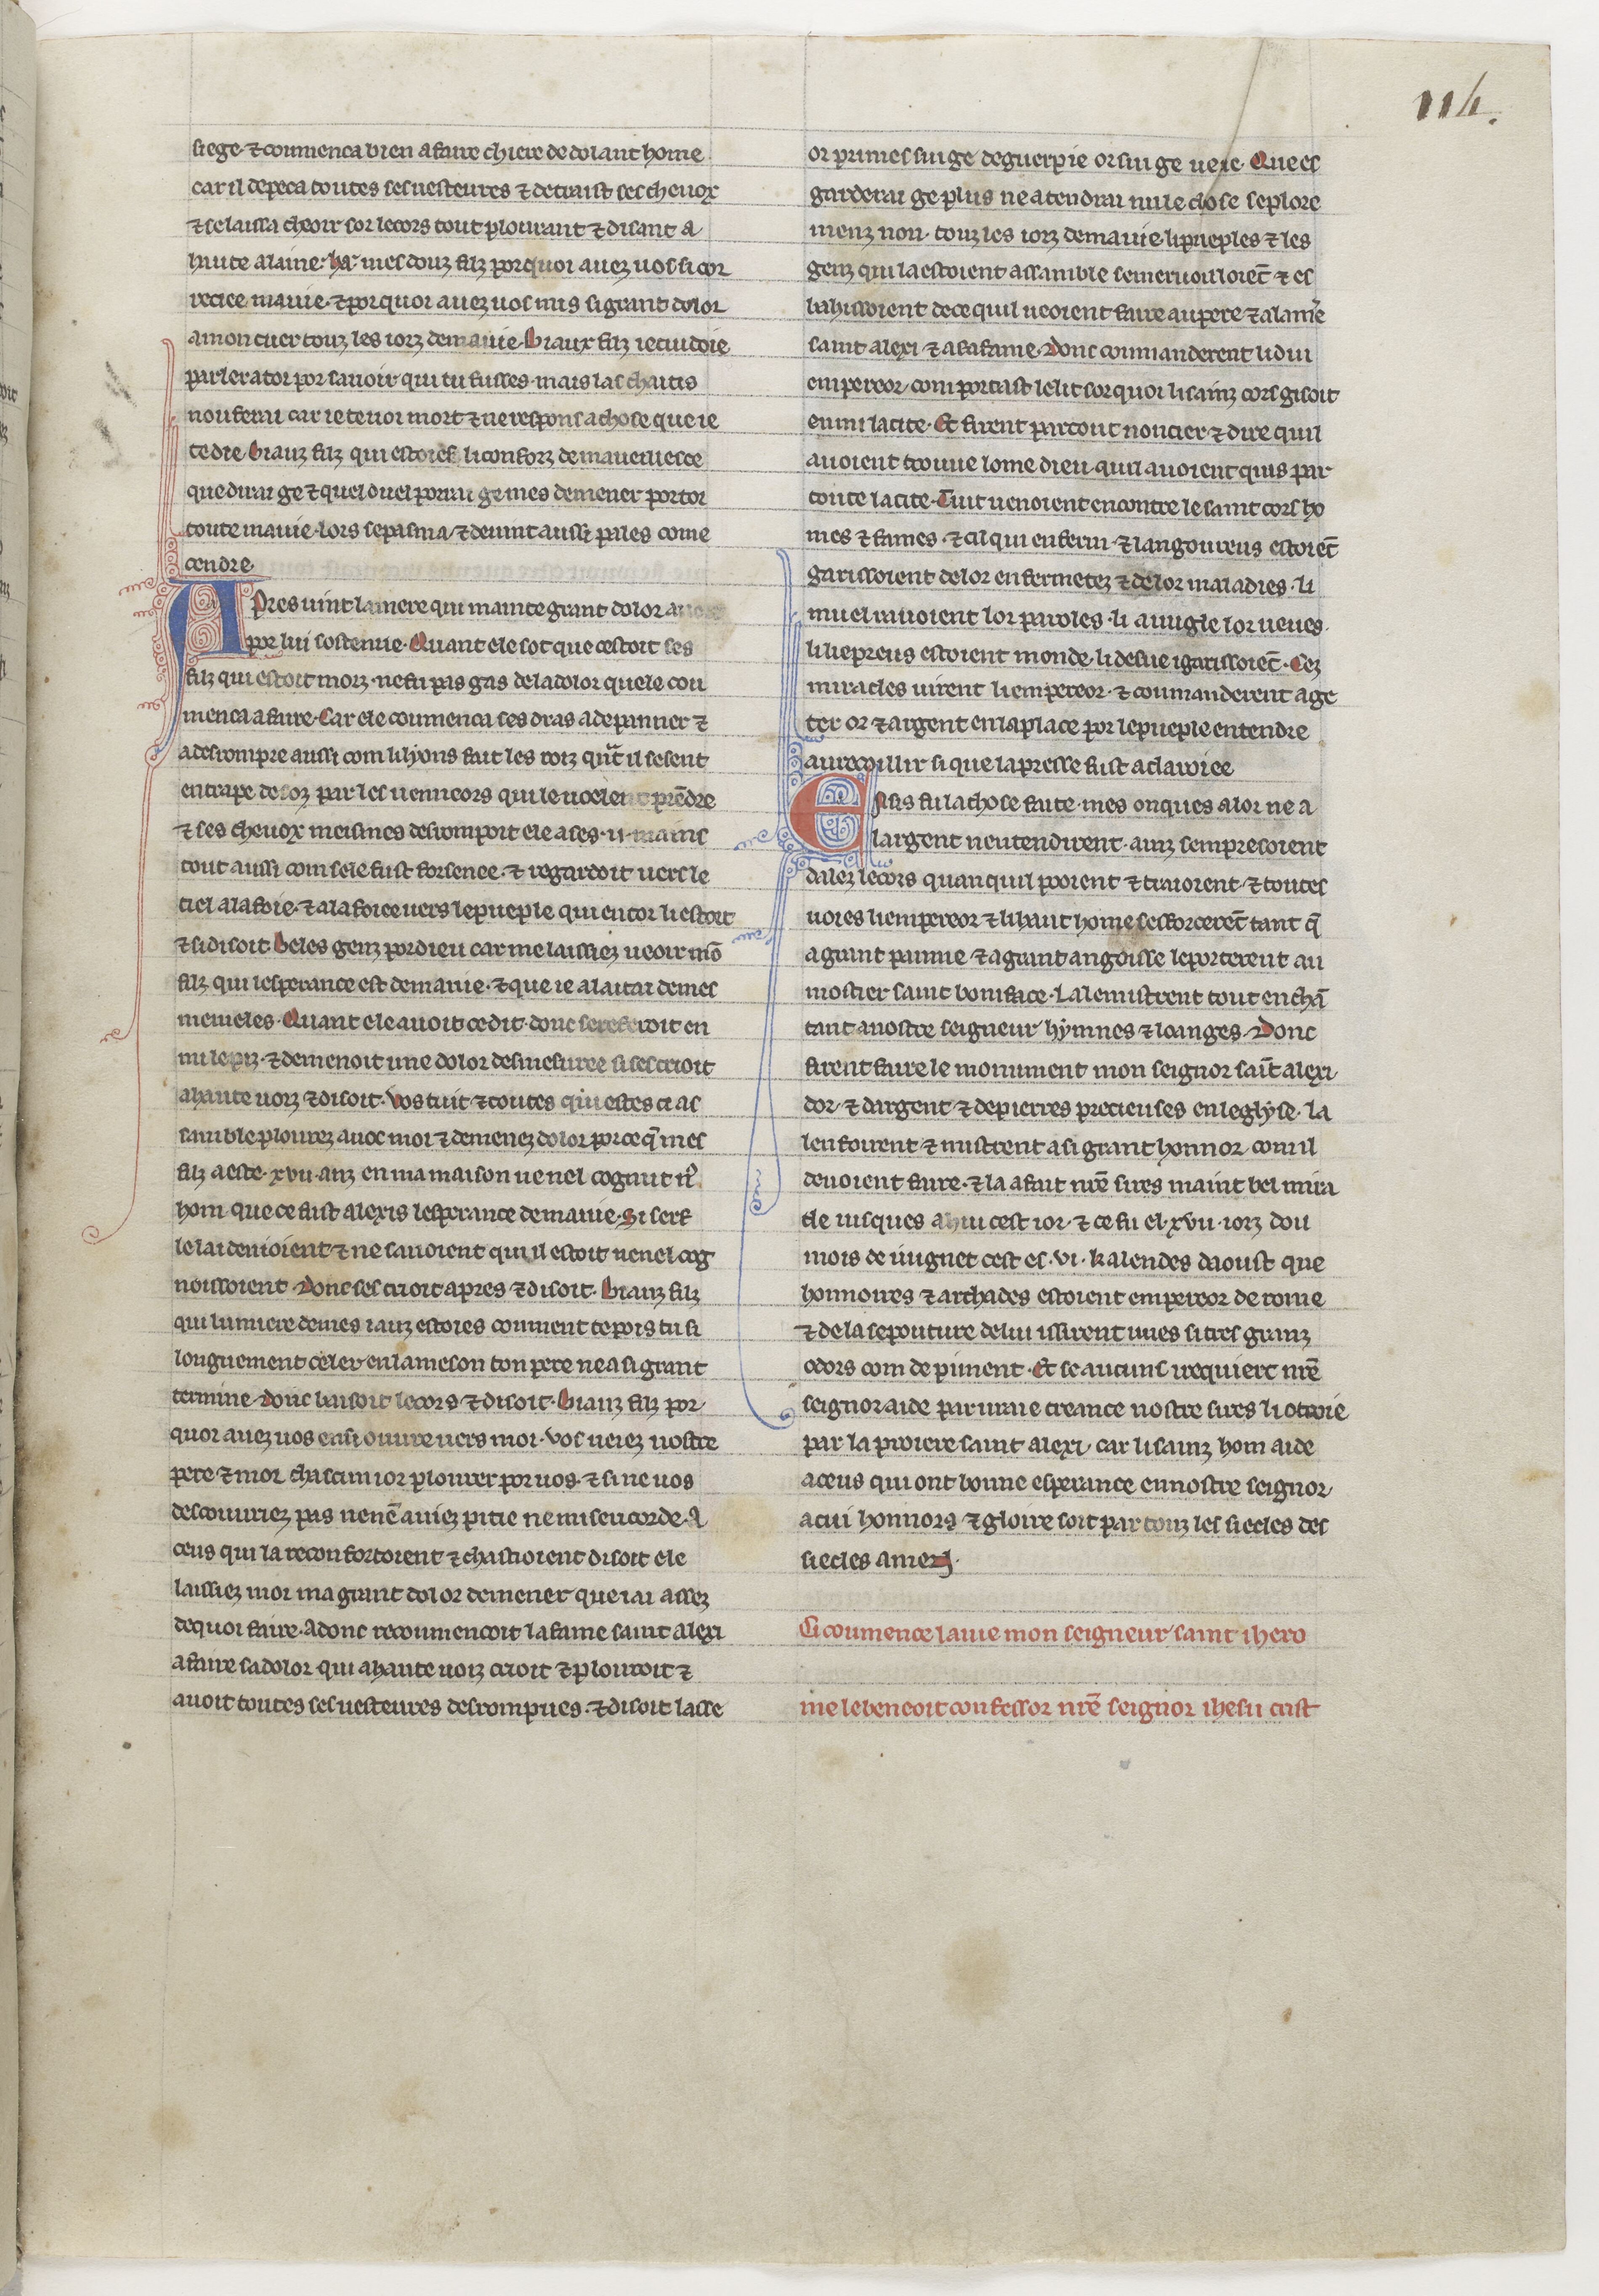 114.
siege ⁊ coumenca bien a faire chiere de dolant home
car il depeca toutes ses uesteures ⁊ detraist ses cheuox
⁊ se laissa cheoir sor le cors tout plourant ⁊ disant a
haute alaine· ha· mes douz filz por quoi auez uos si cor
reciee ma uie· ⁊ por quoi auez uos mis si grant dolor
a mon cuer touz les iorz de ma uie· Biaux filz ie cuidoie
parler a toi por sauoir qui tu fusses· mais las chaitis
nou ferai car ie te uoi mort ⁊ ne respons a chose que ie
te die biauz filz qui estoies li conforz de ma uieillesce
que dirai ge ⁊ quel duel porrai ge mes demener por toi
toute ma uie· lors se pasma· ⁊ deuint aussi pales come
cendre
Apres uint la mere qui mainte grant dolor auoit
por lui sostenue· Quant ele sot que cestoit ses
filz qui estoit morz· ne fu pas gas de la dolor quele cou
menca a faire· Car ele coumenca ses dras a depanner ⁊
a desrompre aussi com li lyons fait les roiz qñt il se sent
entrape desoz par les ueneors qui le uoelent prēdre
⁊ ses cheuox meismes desrompoit ele a ses ·ii· mains
tout aussi com sele fust forsenee· ⁊ regardoit uers le
ciel a la foie· ⁊ a la foiee uers le pueple qui encor li estoit
⁊ si disoit beles genz por dieu car me laissiez ueoir mō
filz qui lesperance est de ma uie· ⁊ que ie alaitai de mes
memeles· Quant ele auoit ce dit· donc se referoit en
mi le piz· ⁊ demenoit une dolor desmesuree si sescrioit
a haute uoiz ⁊ disoit· Vos tuit ⁊ toutes qui estes ci as
samble plourez auoc moi ⁊ demenez dolor por ce q̄ mes
filz a este ·xvii· anz en ma maison ne nel cognut n̄
hom que ce fust alexis lesperance de ma uie· Si serf
le laidenioient ⁊ ne sauoient qui il estoit ne nel cog
noissoient· Donc sescrioit apres ⁊ disoit· Biauz filz
qui lumiere de mes iauz estoies coument te pois tu si
longuement celer en la meson ton pere ne a si grant
termine· Donc baisoit le cors ⁊ disoit· Biauz filz por
quoi auez uos ensi ouure uers moi· Vos ueiez uostre
pere ⁊ moi chascun ior plourer por uos· ⁊ si ne uos
descouuriez pas ne nē auiez pitie ne misericorde· A
ceus qui la reconfortoient ⁊ chastioient disoit ele
laissiez moi ma grant dolor demener que iai assez
de quoi faire· Adonc recoumencoit la fame saint alexi
a faire sa dolor qui a haute uoiz crioit ⁊ plouroit ⁊
auoit toutes ses uesteures desrompues· ⁊ disoit lasse
or primes sui ge deguerpie or sui ge ueue· Que es
garderai ge plus ne atendrai nule chose se plore
menz non· touz les iorz de ma uie· li pueples ⁊ les
genz qui la estoient assamble semeruoilloiēt ⁊ es
bahissoient de ce quil ueoient faire au pere ⁊ a la mer̄e
saint alexi ⁊ a sa fame· Donc coumanderent li dui
empereor· com portast le lit sor quoi li sainz cors gisoit
enmi la cite· Et firent partout noncier ⁊ dire quil
auoient trouue lome dieu quil auoient quis par
toute la cite· Tuit uenoient encontre le saint cors ho
mes ⁊ fames· ⁊ cil qui enferm ⁊ langoureus estoiēt
garissoient de lor enfermetez ⁊ de lor maladies· li
muel rauoient lor paroles· li auugle lor ueues·
li liepreus estoient monde· li desue i garissoiēt· Cez
miracles uirent li empereor· ⁊ coumanderent a ge
ter or ⁊ argent en la place por le pueple entendre
au recoillir si que la presse fust aclaroiee
Ensis fu la chose faite· mes onques a lor ne a
largent nentendirent· ainz sempresoient
dalez le cors quanquil pooient ⁊ traioient· ⁊ toutes
uoies li empereor ⁊ li haut home sesforcerēt tant q̄
a grant painne ⁊ a grant angoisse le porterent au
mostier saint boniface· La le mistrent tout en chā
tant a nostre seigneur hymnes ⁊ loanges· Donc
firent faire le monument mon seignor saīt alexi
dor· ⁊ dargent ⁊ de pierres precieuses en leglyse· la
lenfouirent ⁊ mistrent a si grant honnor com il
deuoient faire· ⁊ la a fait nr̄e sires maint bel mira
cle iusques a hui cest ior· ⁊ ce fu el ·xvii· iorz dou
mois de iungnet cest es ·vi· kalendes daoust que
honnoires ⁊ archades estoient empereor de rome
⁊ de la sepouture de lui issirent unes si tres granz
odors com de piment· Et se aucuns i requiert nr̄e
seignor aide par uraie creance nostre sires li otroie
par la proiere saint alexi· car li sainz hom aide
a ceus qui ont bonne esperance en nostre seignor
a cui honnors ⁊ gloire soit par touz les siecles des
siecles amen·
Ci coumence la uie mon seigneur saint ihero
me le beneoit confessor nr̄e seignor ihesu crist